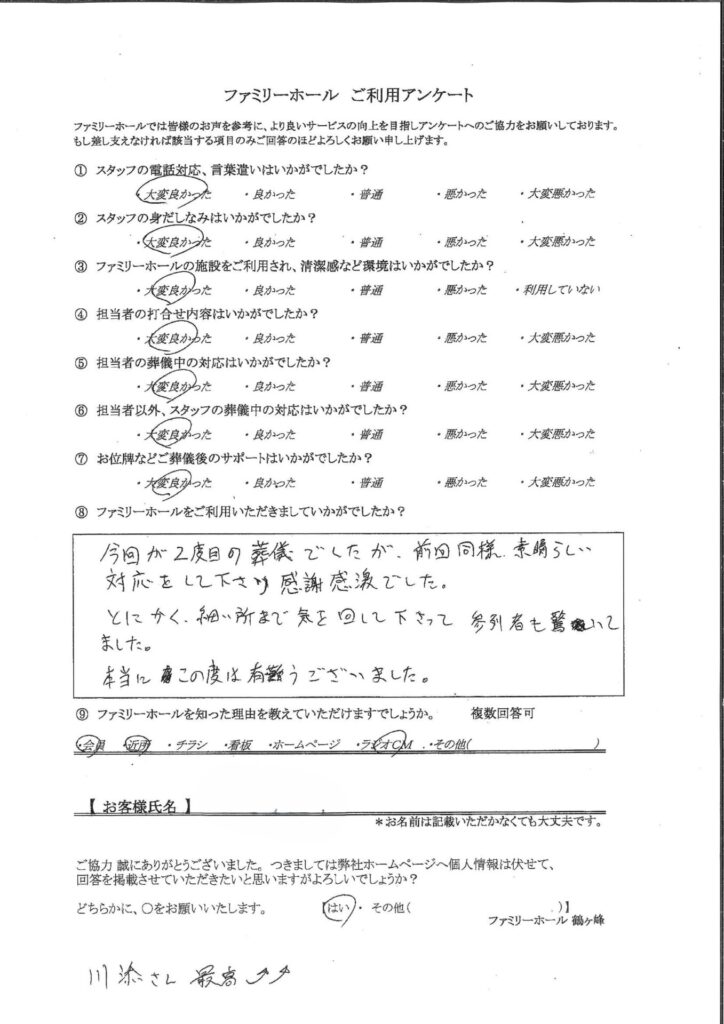 ファミリーホール ご利用アンケート
ファミリーホールでは皆様のお声を参考に、より良いサービスの向上を目指しアンケートへのご協力をお願いしております。
もし差し支えなければ該当する項目のみご回答のほどよろしくお願い申し上げます。
① スタッフの電話対応、言葉遣いはいかがでしたか?
・大変良かった ・良かった ・普通 ・悪かった ・大変悪かった
② スタッフの身だしなみはいかがでしたか?
・大変良かった ・良かった ・普通 ・悪かった ・大変悪かった
③ ファミリーホールの施設をご利用され、清潔感など環境はいかがでしたか?
・大変良かった ・良かった ・普通 ・悪かった ・利用していない
④ 担当者の打合せ内容はいかがでしたか?
・大変良かった ・良かった ・普通 ・悪かった ・大変悪かった
⑤ 担当者の葬儀中の対応はいかがでしたか?
・大変良かった ・良かった ・普通 ・悪かった ・大変悪かった
⑥ 担当者以外、スタッフの葬儀中の対応はいかがでしたか?
・大変良かった ・良かった ・普通 ・悪かった ・大変悪かった
⑦ お位牌などご葬儀後のサポートはいかがでしたか?
・大変良かった ・良かった ・普通 ・悪かった ・大変悪かった
⑧ ファミリーホールをご利用いただきましていかがでしたか?
今回が2度目の葬儀でしたが、前回同様、素晴らしい
対応をして下さり感謝感激でした。
とにかく、細い所まで気を回して下さって 参列者も驚いて
ました。
本当に この度は有難うございました。
⑨ ファミリーホールを知った理由を教えていただけますでしょうか。 複数回答可
・会員 ・近所 ・チラシ ・看板 ・ホームページ ・ラジオCM ・その他( )
【 お客様氏名 】
*お名前は記載いただかなくても大丈夫です。
ご協力 誠にありがとうございました。つきましては弊社ホームページへ個人情報は伏せて、
回答を掲載させていただきたいと思いますがよろしいでしょうか?
どちらかに、○をお願いいたします。 【はい ・ その他( )】
ファミリーホール 鶴ヶ峰
川添さん 最高